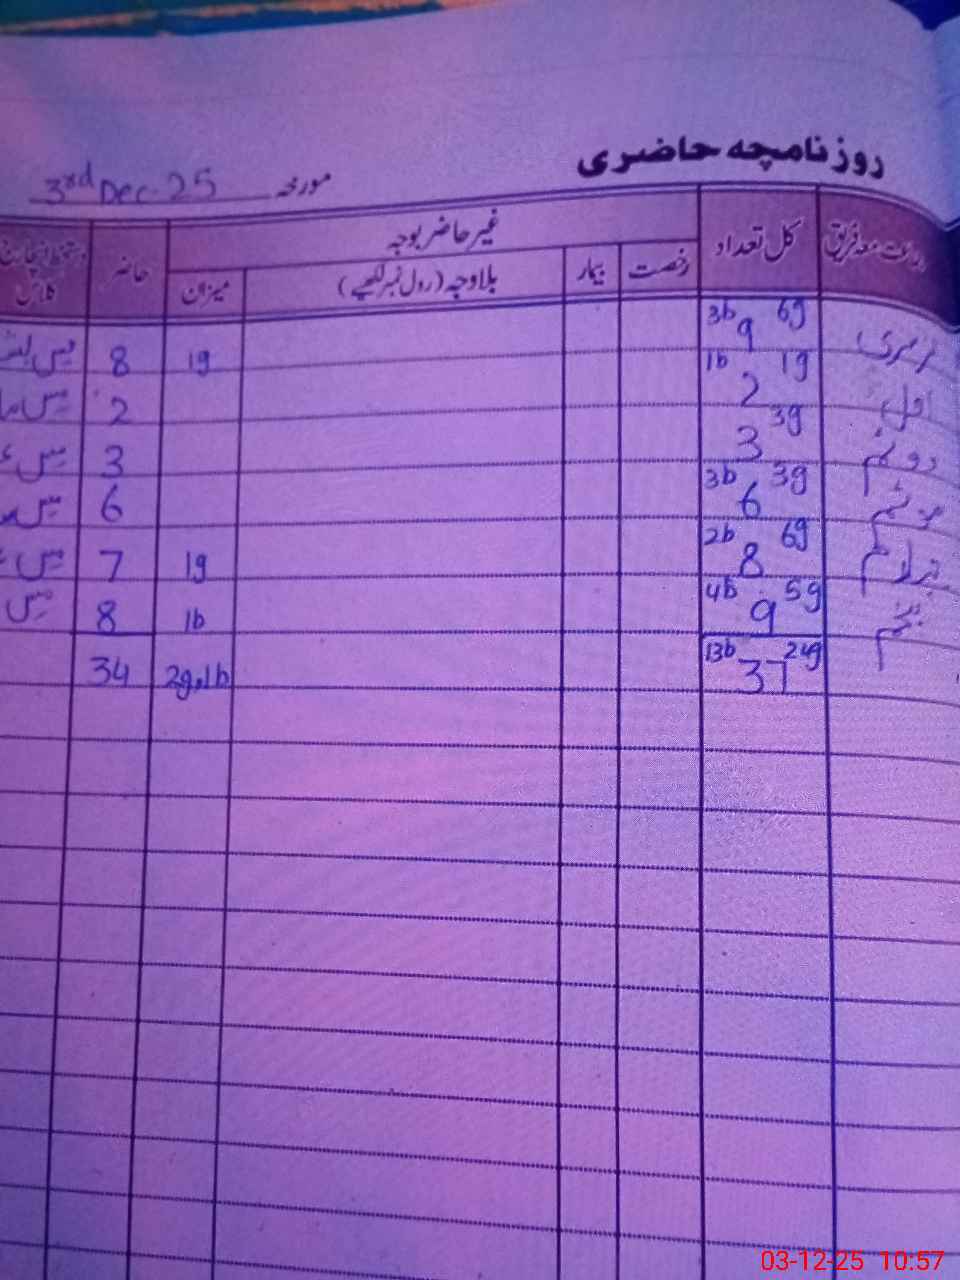 روزنامچہ حاضری
مورخہ 3rd Dec. 25
جماعت معہ فریق کل تعداد غیر حاضر بوجہ حاضر دستخط انچارج کلاس
رخصت بیمار بلاوجہ (رول نمبر لکھیے) میزان
نرسری 3b 9 6g 1g 8 مس
اول 1b 2 1g 2 مس
دوئم 3 3g 3 مس
سوئم 3b 6 3g 6 مس
چہارم 2b 8 6g 1g 7 مس
پنجم 4b 9 5g 1b 8 مس
13b 37 24g 2g,1b 34
03-12-25 10:57